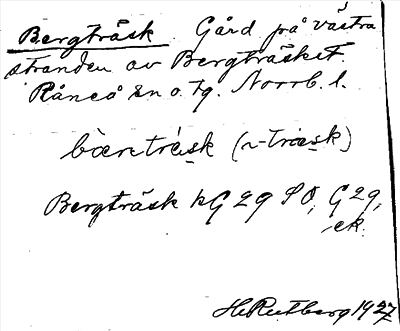 Bergträsk. Gård på västra
stranden av Bergträsket.
Råneå sn o. tg. Norrb. l.
bæ̀ntræsk (~træsk)
Bergträsk hG 29 SO, G 29,
ek.
H. Rutberg 1927